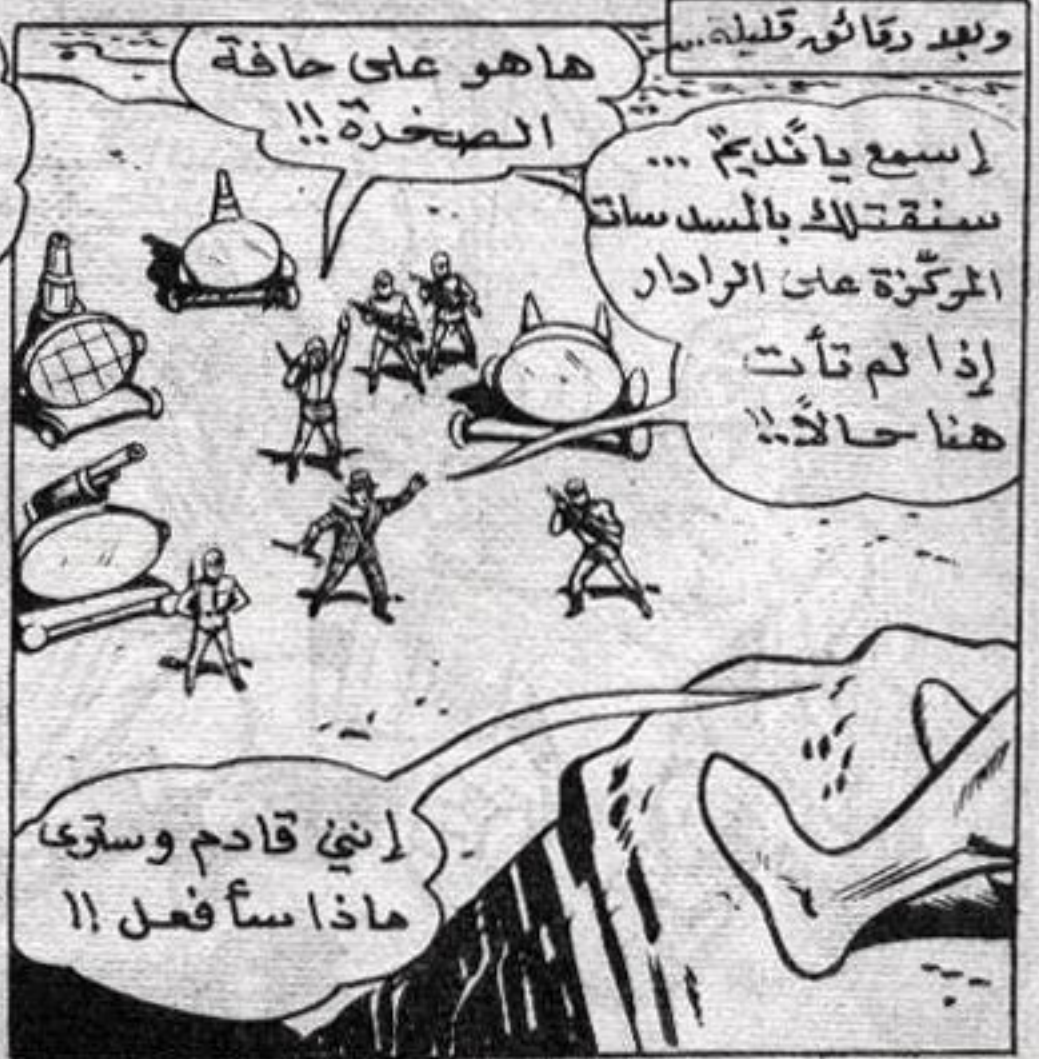 وبعد دقائق قليلة...
ها هو على حافة
الصخرة!!
إسمع يا نديم ...
سنقتلك بالمسدسات
المركّزة على الرادار
إذا لم تأت
هنا حالاً!!
إنني قادم وسترى
ماذا سأفعل!!